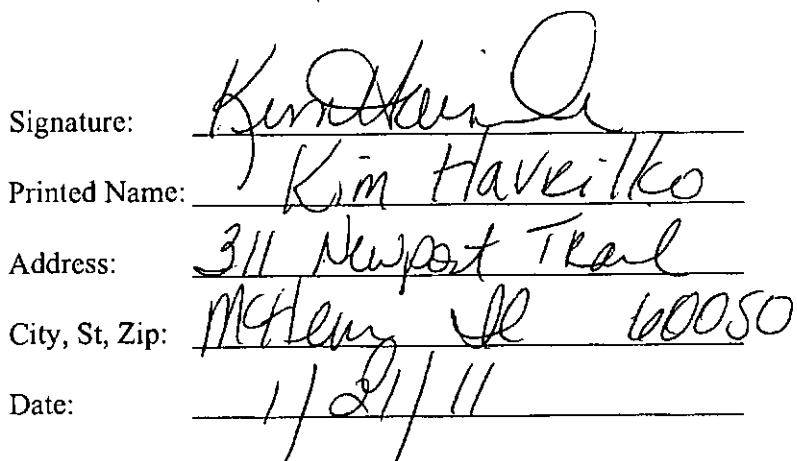 Signature: Kim Havrilko
Printed Name: Kim Havrilko
Address: 311 Newport Trail
City, St, Zip: McHenry Il 60050
Date: 1/21/11